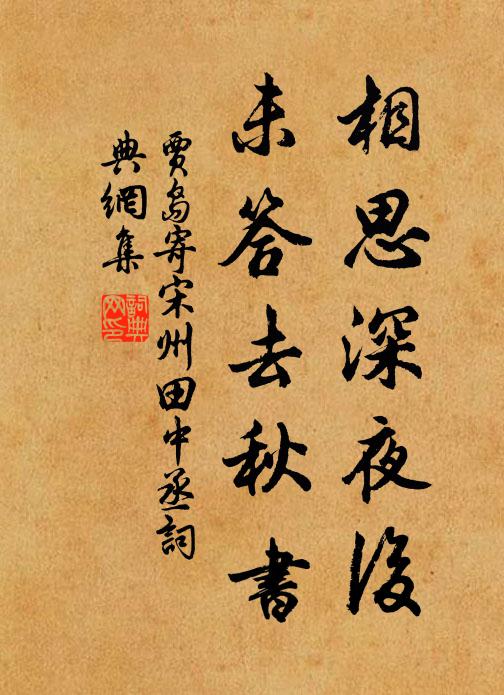 相思深夜後
未答去秋書
賈島寄宋州田中丞詞
典網集
詞典網印